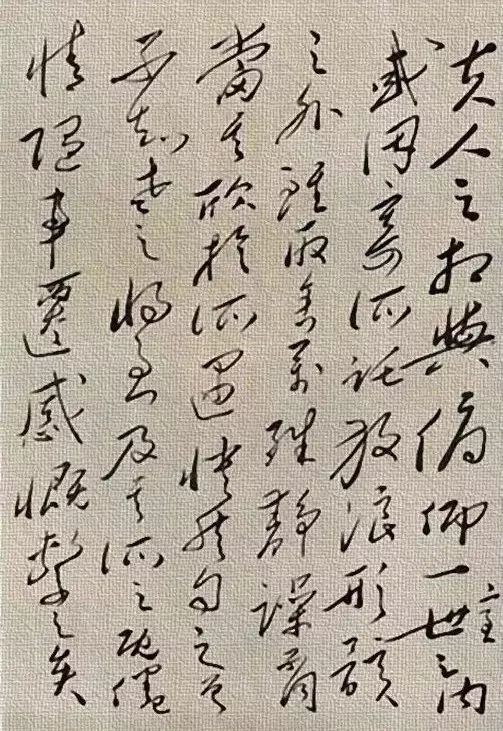 夫人之相與俯仰一世一室之內
或因寄所託放浪形骸
之外雖取舍萬殊靜躁
當其欣於所遇快然自足
不知老之將至及其所之既倦
情隨事遷感慨繫之矣